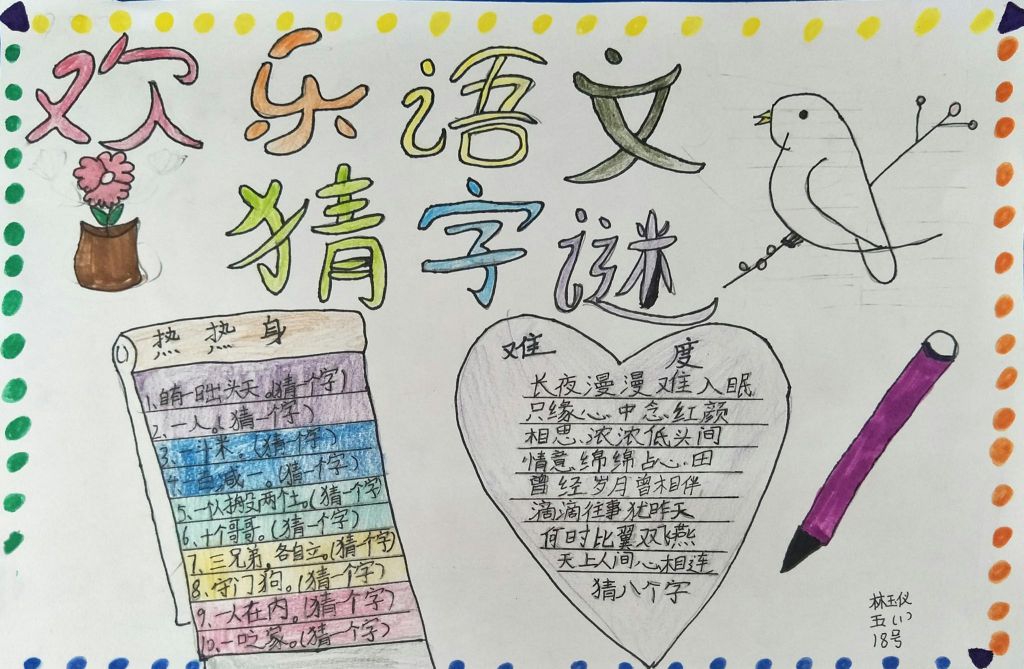 欢乐语文
猜字谜
热热身
1、自有一日出头天。(猜一个字)
2、一人。(猜一个字)
3、一斗米。(猜一个字)
4、一百减一。(猜一个字)
5、一人搬两个土。(猜一个字)
6、十个哥哥。(猜一个字)
7、三兄弟,各自立。(猜一个字)
8、守门狗。(猜一个字)
9、一人在内。(猜一个字)
10、一口之家。(猜一个字)
难度
长夜漫漫难入眠
只缘心中念红颜
相思浓浓低头间
情意绵绵占心田
曾经岁月曾相伴
滴滴往事犹昨天
何时比翼双飞燕
天上人间心相连
猜八个字
林玉仪
五(1)
18号